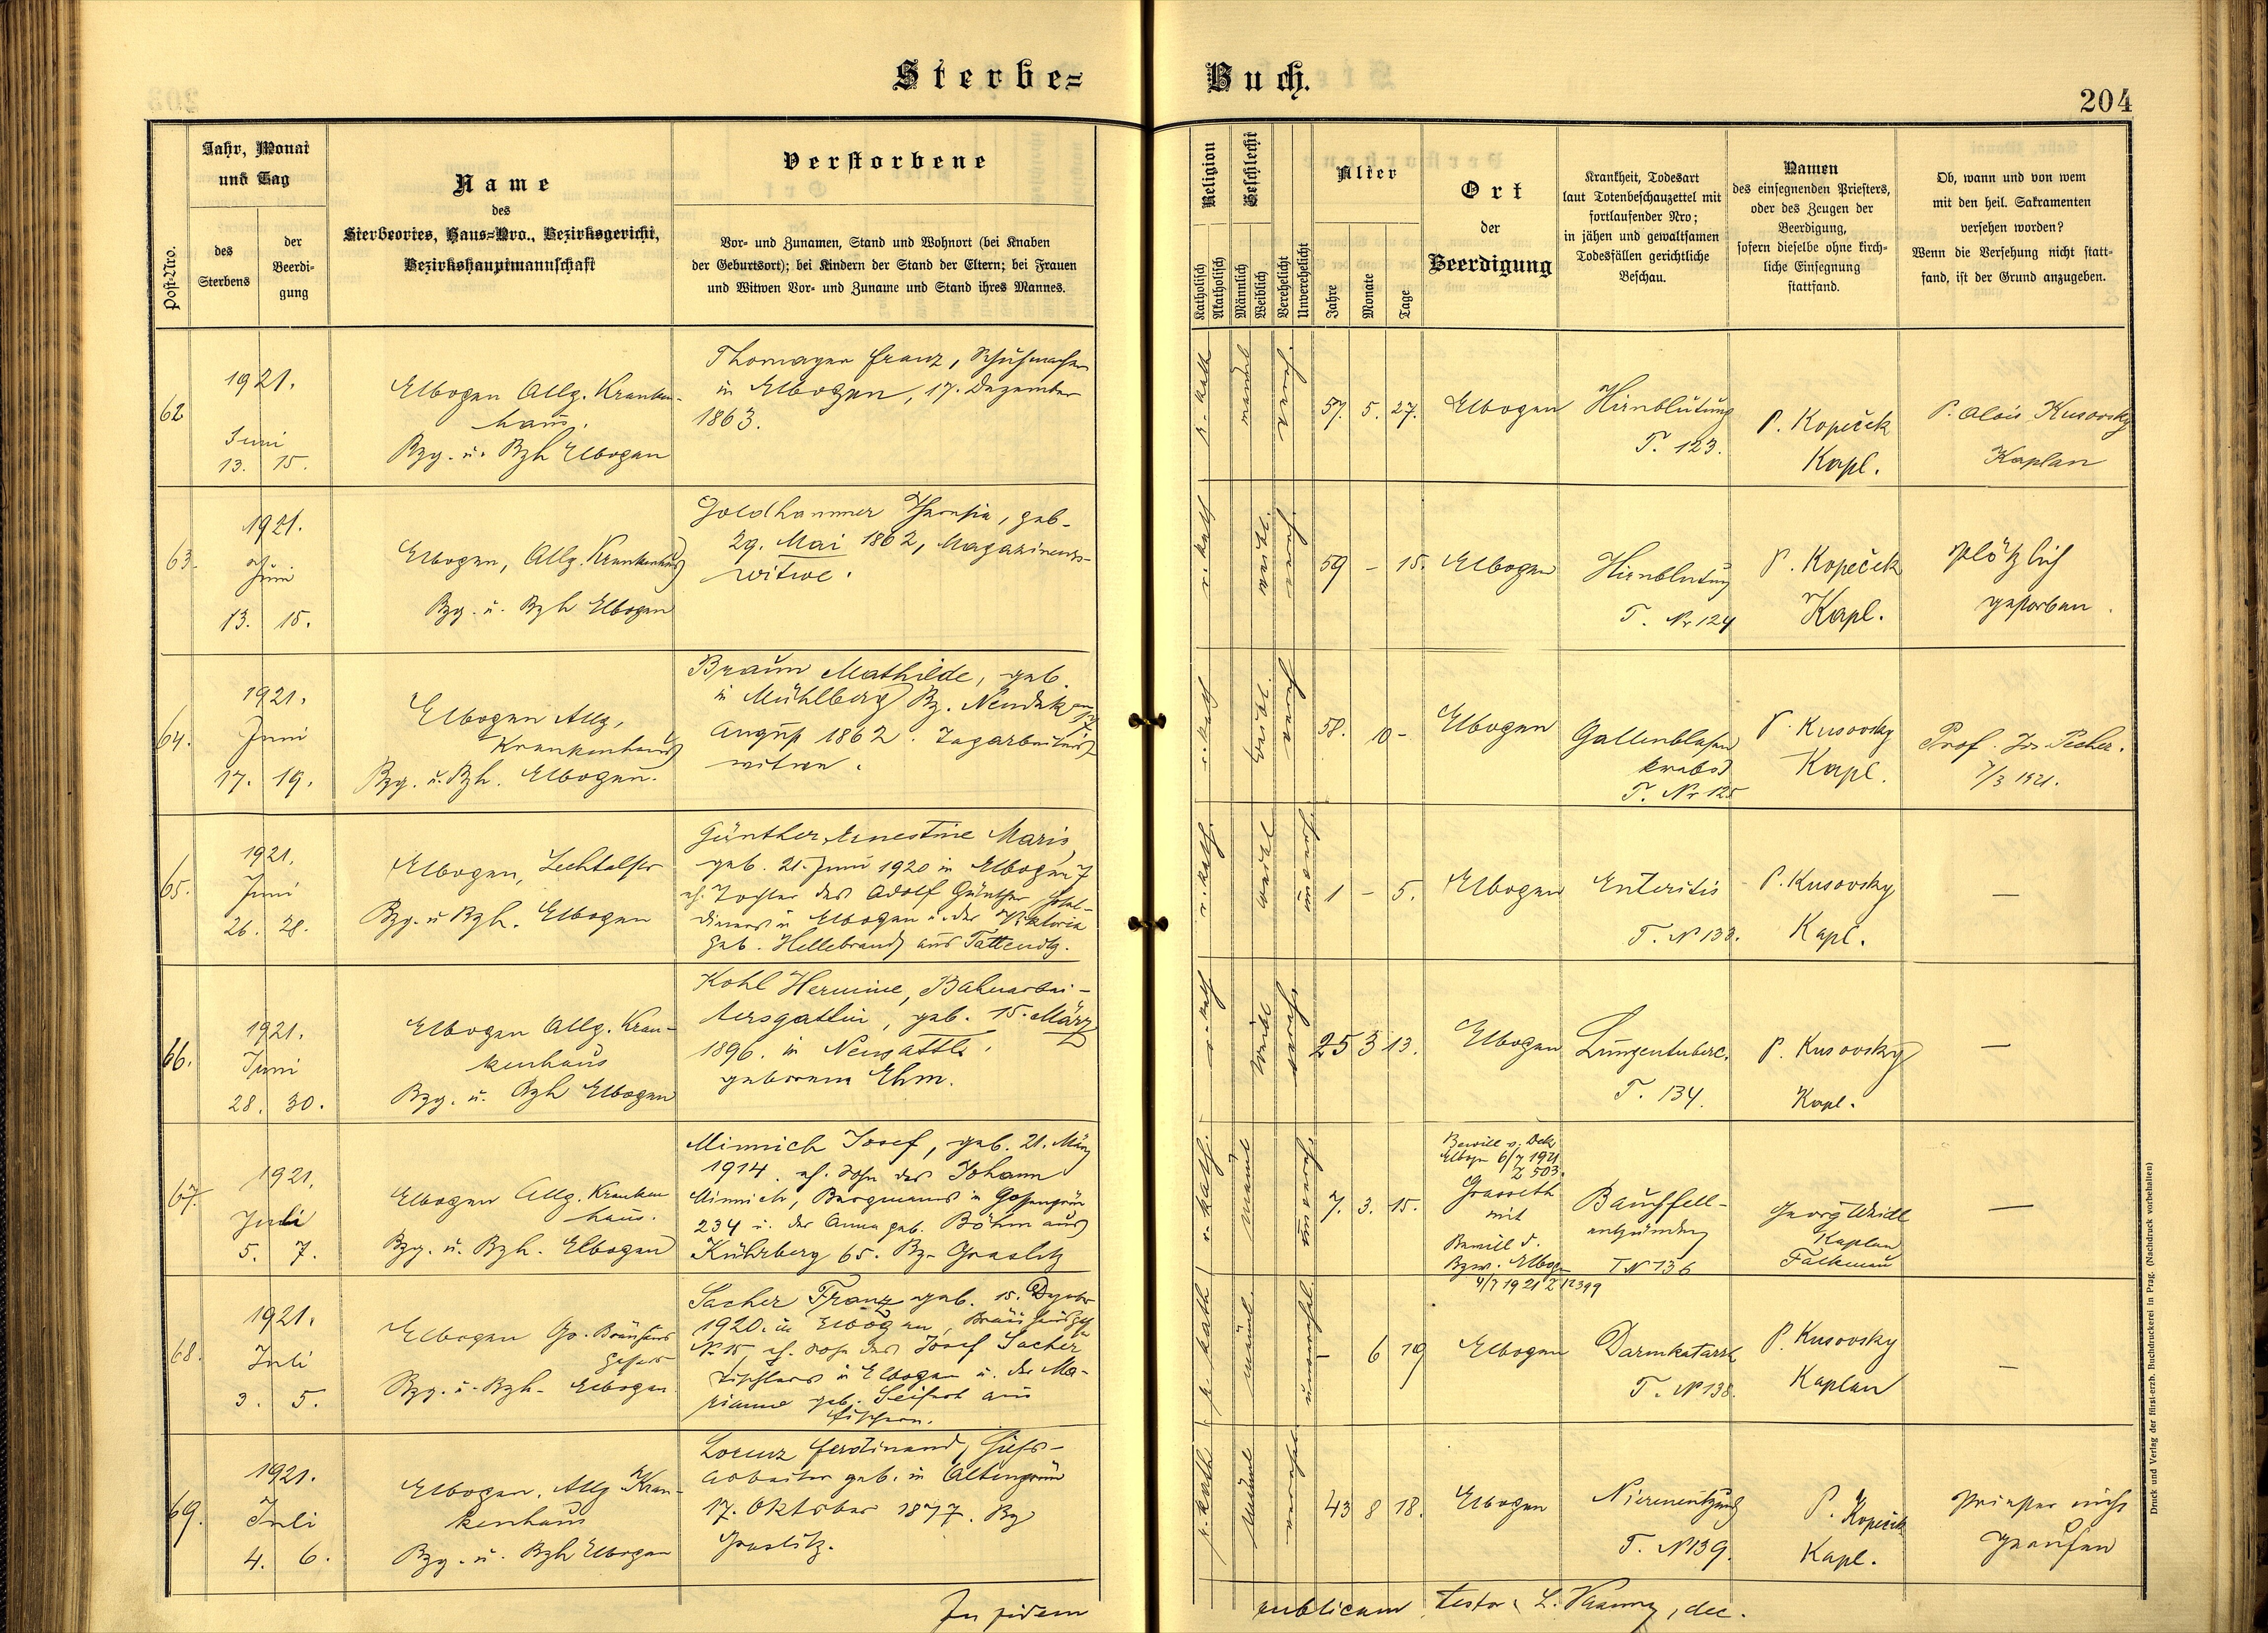 Sterbe=
Buch.
204
Post-Nro.
Jahr, Monat
und Tag
des
Sterbens
der
Beerdi-
gung
Name
des
Sterbeortes, Haus-Nro., Bezirksgericht,
Bezirkshauptmannschaft
Verstorbene
Vor- und Zunamen, Stand und Wohnort (bei Knaben
der Geburtsort); bei Kindern der Stand der Eltern; bei Frauen
und Witwen Vor- und Zuname und Stand ihres Mannes.
Religion
Katholisch
Akatholisch
Geschlecht
Männlich
Weiblich
Verehelicht
Unverehelicht
Alter
Jahre
Monate
Tage
Ort
der
Beerdigung
Krankheit, Todesart
laut Totenbeschauzettel mit
fortlaufender Nro;
in jähen und gewaltsamen
Todesfällen gerichtliche
Beschau.
Namen
des einsegnenden Priesters,
oder des Zeugen der
Beerdigung,
sofern dieselbe ohne kirch-
liche Einsegnung
stattfand.
Ob, wann und von wem
mit den heil. Sakramenten
versehen worden?
Wenn die Versehung nicht statt-
fand, ist der Grund anzugeben.
62
1921.
Juni
13. 15.
Elbogen Allg. Kranken-
haus.
Bzg. u. Bzh Elbogen
Thomayer Franz, Schuhmacher
in Elbogen, 17. Dezember
1863.
r. kath
männl
57. 5. 27.
Elbogen
Hirnblutung
T. 123.
P. Kopeček
Kapl.
P. Alois Kusovsky
Kaplan
63.
1921.
Juni
13. 15.
Elbogen, Allg. Krankenhaus
Bzg. u. Bzh Elbogen
Goldhammer Theresia, geb.
29. Mai 1862, Magazineurs-
witwe.
r. kath
weibl.
59 - 15.
Elbogen
Hirnblutung
T. Nr 124
P. Kopeček
Kapl.
plötzlich
gestorben.
64.
1921.
Juni
17. 19.
Elbogen Allg.
Krankenhaus
Bzg. u. Bzh. Elbogen.
Braun Mathilde, geb.
in Mühlberg Bz. Neudek am
August 1862. Tagarbeiters
witwe.
r. kath
weibl.
58. 10 -
Elbogen
Gallenblasen
krebs
T. Nr 125
P. Kusovsky
Kapl.
Prof. Jos. Pecher.
7/3 1921.
65.
1921.
Juni
26. 28.
Elbogen,
Bzg. u Bzh. Elbogen
Günther Ernestine Maria,
geb. 21. Juni 1920 in Elbogen
eh. Tochter des Adolf Günther Hotel-
dieners in Elbogen u. der Viktoria
geb. Hellebrand aus
r. kath.
weibl
1 - 5.
Elbogen
Enteritis
T. N 133.
P. Kusovsky
Kapl.
—
66.
1921.
Juni
28. 30.
Elbogen Allg. Kran-
kenhaus
Bzg. u. Bzh Elbogen
Kohl Hermine, Bahnarbei-
tersgattin, geb. 15. März
1896. in Neusattl.
geborene Ehm.
r. kath
weibl
25 3 13.
Elbogen
Lungentuberc.
T. 134.
P. Kusovsky
Kapl.
—
67.
1921.
Juli
5. 7.
Elbogen Allg. Kranken
haus.
Bzg. u. Bzh. Elbogen
Minnich Josef, geb. 21. März
1914. eh. Sohn des Johann
Minnich, Bergmanns in Gossengrün
234 u. der Anna geb. Böhm aus
Kührberg 65. Bz. Graslitz
r. kath.
männl
7. 3. 15.
Bewill v. Dek
Elbogn 6/7 1921
Z 503.
Grasseth
mit
Bewill d.
Bzw. Elbogn
4/7 1921 Z 12399
Bauchfell-
entzündung
T N 136
Georg Weidl
Kaplan
Falkenau
—
68.
1921.
Juli
3. 5.
Elbogen Gr. Bräuhaus
gasse
Bzg. u. Bzh. Elbogen.
Sacher Franz geb. 15. Dezember
1920. in Elbogen, Bräuhausg.
N. 15, eh. Sohn des Josef Sacher
Tischlers in Elbogen u. der Ma-
rianne geb. Seifert aus
Fischern.
r. kath
männl.
unverehel.
- 6 19
Elbogen
Darmkatarrh
T. N 138.
P. Kusovsky
Kaplan
—
69.
1921.
Juli
4. 6.
Elbogen, Allg. Kran-
kenhaus
Bzg. u. Bzh Elbogen
Lorenz Ferdinand, Hilfs-
arbeiter geb. in Altengrün
17. Oktober 1877. Bz
Graslitz.
r. kath.
männl
verehel.
43 8 18.
Elbogen
Nierenentzündg
T. N 139.
P. Kopeček
Kapl.
Priester nicht
gerufen
In fidem
publicam testor: L. , dec.
Druck und Verlag der fürst-erzb. Buchdruckerei in Prag. (Nachdruck vorbehalten)